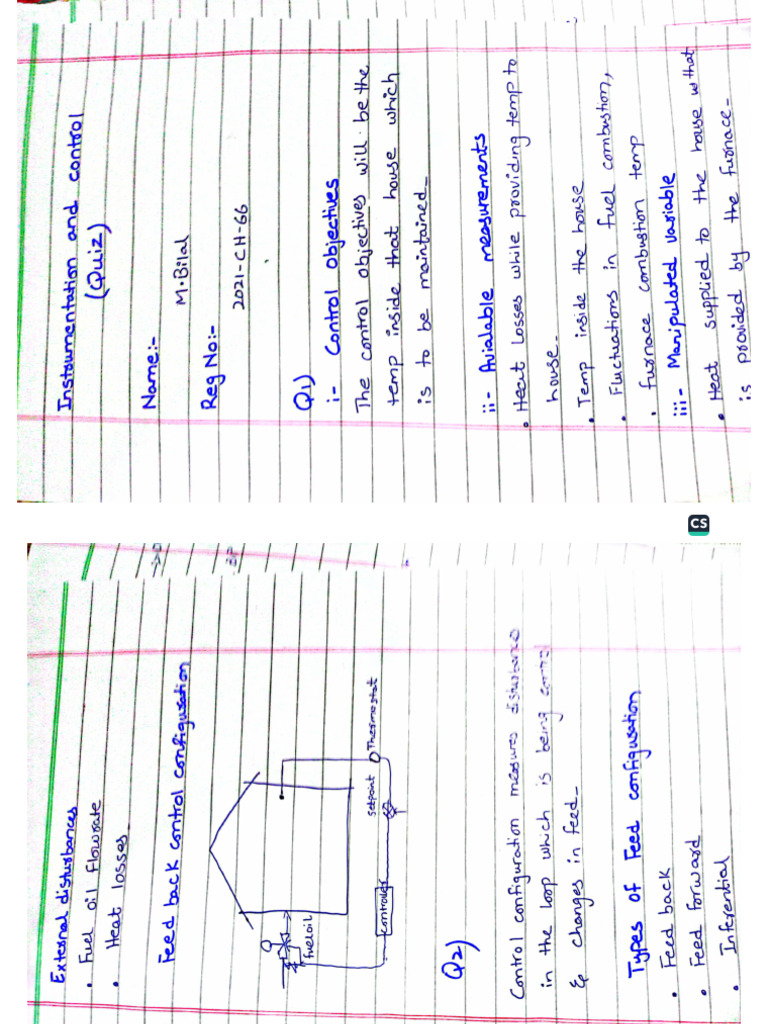 Instrumentation and control
(Quiz)
Name:-
M.Bilal
Reg No:-
2021-CH-66
Q1)
i:- Control objectives
The control objectives will be the
temp inside that house which
is to be maintained-
ii:- Avialable measurements
• Heat Losses while providing temp to
house-
• Temp inside the house
• Fluctuations in fuel combustion,
• furnace combustion temp
iii:- Manipulated variable
• Heat supplied to the house that
is provided by the furnace-
CS
External disturbances
• Fuel oil flowrate
• Heat losses
Feed back control configuration
Setpoint
Thermostat
fueloil
Controller
Q2)
Control configuration measures disturbance
in the loop which is being control
& changes in feed-
Types of Feed configuration
• Feed back
• Feed forward
• Inferential